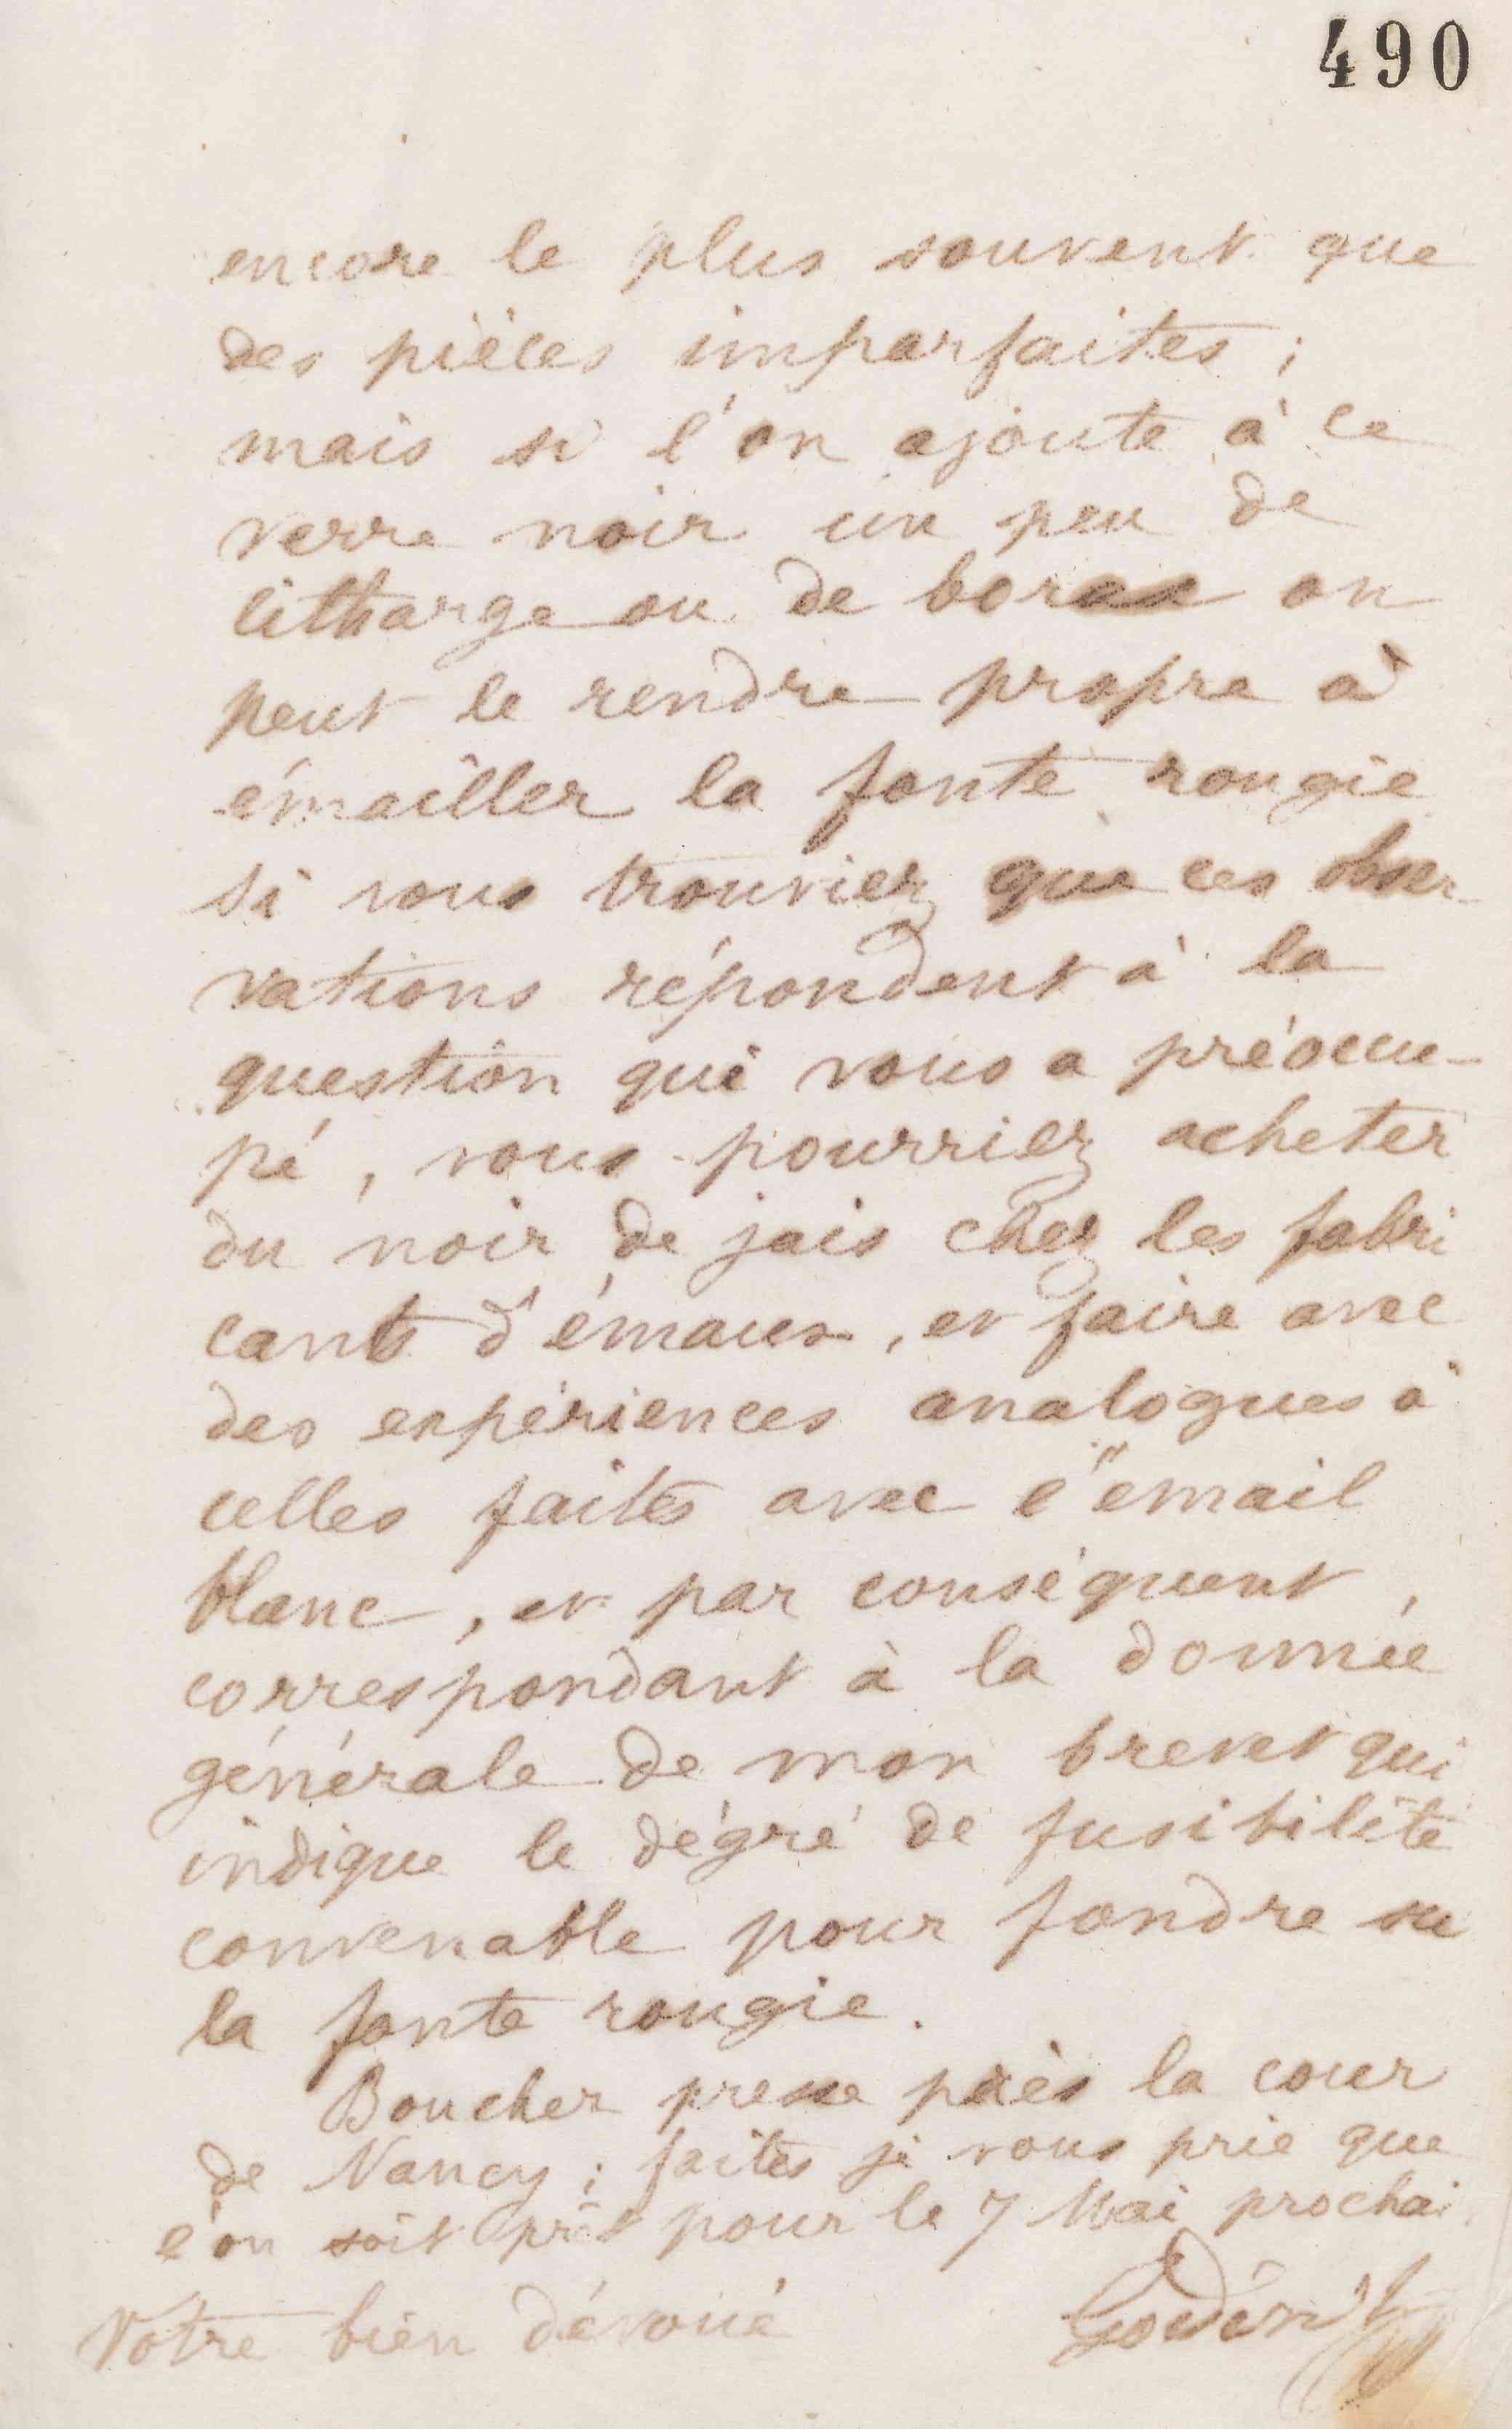 490
encore le plus souvent que
des pièces imparfaites ;
mais si l'on ajoute à ce
verre noir un peu de
litharge ou de borax on
peut le rendre propre à
émailler la fonte rougie
si vous trouviez que ces obser-
vations répondent à la
question qui vous a préoccu-
pé, vous pourriez acheter
du noir de jais chez les fabri
cants d'émaux, et faire avec
des expériences analogues à
celles faites avec l'émail
blanc, et par conséquent,
correspondant à la donnée
générale de mon brevet qui
indique le dégré de fusibilité
convenable pour fondre su
la fonte rougie.
Boucher presse près la cour
de Nancy ; faites je vous prie que
l'on soit prêt pour le 7 Mai prochai
Votre bien dévoué
Godin